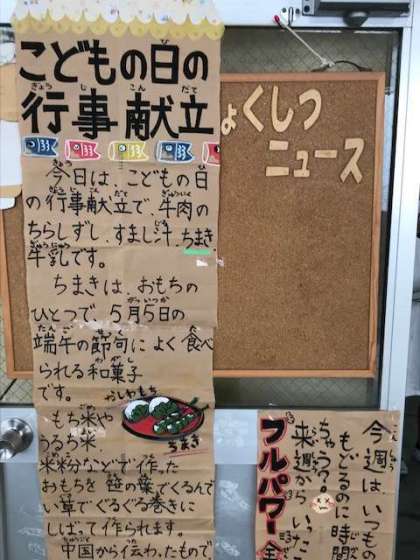 こどもの日の
行事献立
今日は、こどもの日
の行事献立で、牛肉の
ちらしずし、すまし汁、ちまき、
牛乳です。
ちまきは、おもちの
ひとつで、5月5日の
端午の節句によく食べ
られる和菓子
です。
もち米や
うるち米、
米粉などで作った
おもちを笹の葉でくるんで
い草でぐるぐる巻きに
しばって作られます。
中国から伝わったもので
かしわもち
ちまき
ょくしつ
ニュース
今週は、いつも
もどるのに時間
ちゃうの。
来週から
フルパワー全